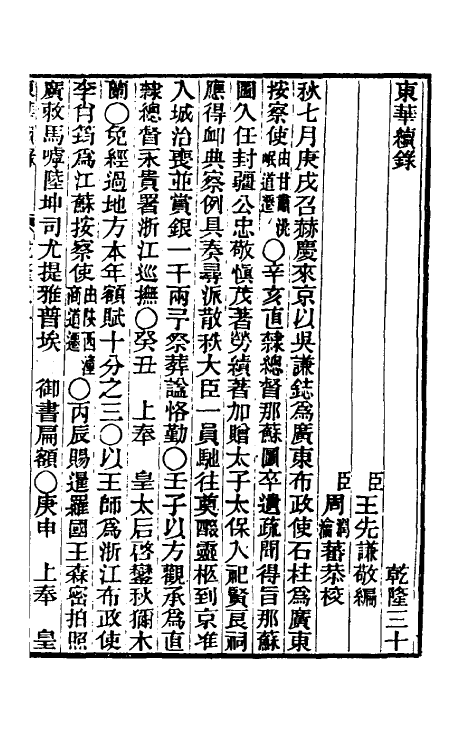 東華續錄　乾隆三十
臣王先謙敬編
臣周潤蕃瀹蕃恭校
秋七月庚戌召赫慶來京以吳謙鋕爲廣東布政使石柱爲廣東
按察使由甘肅洮岷道遷○辛亥直隸總督那蘇圖卒遺疏聞得旨那蘇
圖久任封疆公忠敬愼茂著勞績著加贈太子太保入祀賢良祠
應得卹典察例具奏尋派散秩大臣一員馳往奠醊靈柩到京准
入城治喪並賞銀一千兩予祭葬諡恪勤○壬子以方觀承爲直
隸總督永貴署浙江巡撫○癸丑　上奉　皇太后啓鑾秋獮木
蘭○免經過地方本年額賦十分之三○以王師爲浙江布政使
李肖筠爲江蘇按察使由陝西潼商道遷○丙辰賜暹羅國王森密拍照
廣敕馬嘑陸坤司尤提雅普埃　御書扁額○庚申　上奉　皇